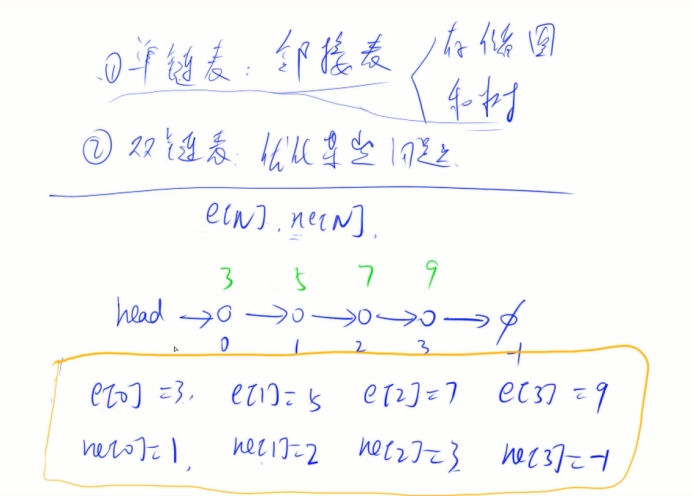 ①单链表：邻接表 存储图
和树
②双链表：优化某些问题
e[N]. ne[N].
3 5 7 9
head →0→0→0→0→∅
0 1 2 3 -1
e[0]=3. e[1]=5 e[2]=7 e[3]=9
ne[0]=1. ne[1]=2 ne[2]=3 ne[3]=-1